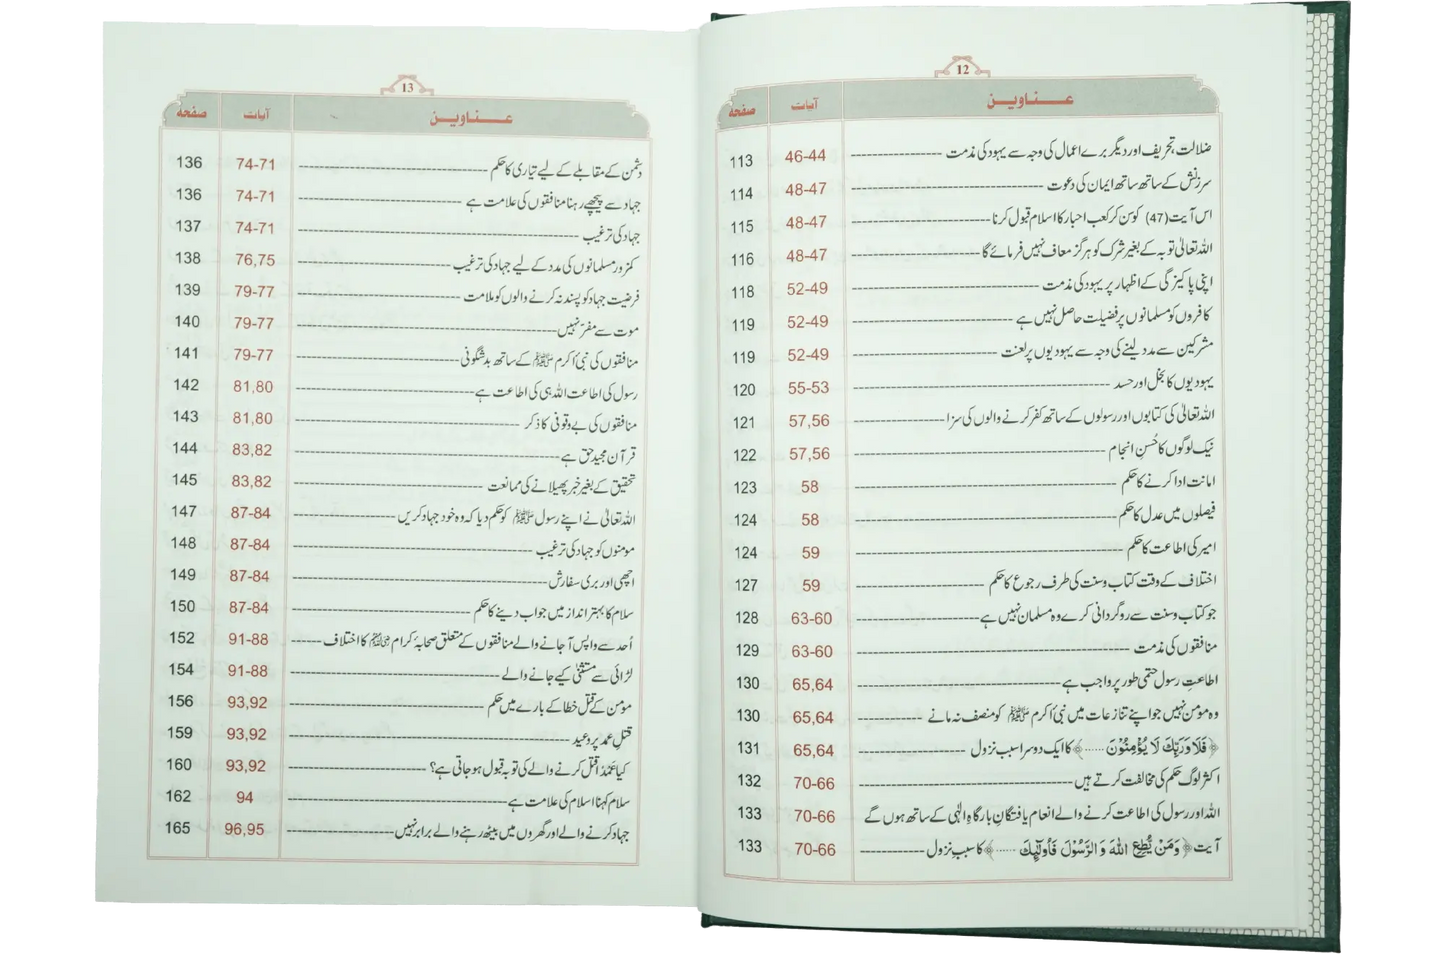 12
عناوین آیات صفحہ
ضلالت، تحریف اور دیگر برے اعمال کی وجہ سے یہود کی مذمت 46-44 113
سرزنش کے ساتھ ساتھ ایمان کی دعوت 48-47 114
اس آیت (47) کو سن کر کعب احبار کا اسلام قبول کرنا 48-47 115
اللہ تعالیٰ توبہ کے بغیر شرک کو ہرگز معاف نہیں فرمائے گا 48-47 116
اپنی پاکیزگی کے اظہار پر یہود کی مذمت 52-49 118
کافروں کو مسلمانوں پر فضیلت حاصل نہیں ہے 52-49 119
مشرکین سے مدد لینے کی وجہ سے یہودیوں پر لعنت 52-49 119
یہودیوں کا بخل اور حسد 55-53 120
اللہ تعالیٰ کی کتابوں اور رسولوں کے ساتھ کفر کرنے والوں کی سزا 57,56 121
نیک لوگوں کا حُسنِ انجام 57,56 122
امانت ادا کرنے کا حکم 58 123
فیصلوں میں عدل کا حکم 58 124
امیر کی اطاعت کا حکم 59 124
اختلاف کے وقت کتاب و سنت کی طرف رجوع کا حکم 59 127
جو کتاب و سنت سے روگردانی کرے وہ مسلمان نہیں ہے 63-60 128
منافقوں کی مذمت 63-60 129
اطاعتِ رسول حتمی طور پر واجب ہے 65,64 130
وہ مومن نہیں جو اپنے تنازعات میں نبیٔ اکرم ﷺ کو منصف نہ مانے 65,64 130
﴿فَلَا وَرَبِّكَ لَا يُؤْمِنُوْنَ ......﴾ کا ایک دوسرا سبب نزول 65,64 131
اکثر لوگ حکم کی مخالفت کرتے ہیں 70-66 132
اللہ اور رسول کی اطاعت کرنے والے انعام یافتگان بارگاہِ الٰہی کے ساتھ ہوں گے 70-66 133
آیت ﴿وَمَنْ يُّطِعِ اللّٰهَ وَالرَّسُوْلَ فَاُولٰٓئِكَ ......﴾ کا سببِ نزول 70-66 133
13
عناوین آیات صفحہ
دشمن کے مقابلے کے لیے تیاری کا حکم 74-71 136
جہاد سے پیچھے رہنا منافقوں کی علامت ہے 74-71 136
جہاد کی ترغیب 74-71 137
کمزور مسلمانوں کی مدد کے لیے جہاد کی ترغیب 76,75 138
فرضیت جہاد کو پسند نہ کرنے والوں کو ملامت 79-77 139
موت سے مفر نہیں 79-77 140
منافقوں کی نبیٔ اکرم ﷺ کے ساتھ بدشگونی 79-77 141
رسول کی اطاعت اللہ ہی کی اطاعت ہے 81,80 142
منافقوں کی بے وقوفی کا ذکر 81,80 143
قرآن مجید حق ہے 83,82 144
تحقیق کے بغیر خبر پھیلانے کی ممانعت 83,82 145
اللہ تعالیٰ نے اپنے رسول ﷺ کو حکم دیا کہ وہ خود جہاد کریں 87-84 147
مومنوں کو جہاد کی ترغیب 87-84 148
اچھی اور بری سفارش 87-84 149
سلام کا بہتر انداز میں جواب دینے کا حکم 87-84 150
اُحد سے واپس آجانے والے منافقوں کے متعلق صحابۂ کرام ﷺ کا اختلاف 91-88 152
لڑائی سے مستثنیٰ کیے جانے والے 91-88 154
مومن کے قتل خطا کے بارے میں حکم 93,92 156
قتلِ عمد پر وعید 93,92 159
کیا عمدًا قتل کرنے والے کی توبہ قبول ہو جاتی ہے؟ 93,92 160
سلام کہنا اسلام کی علامت ہے 94 162
جہاد کرنے والے اور گھروں میں بیٹھ رہنے والے برابر نہیں 96,95 165